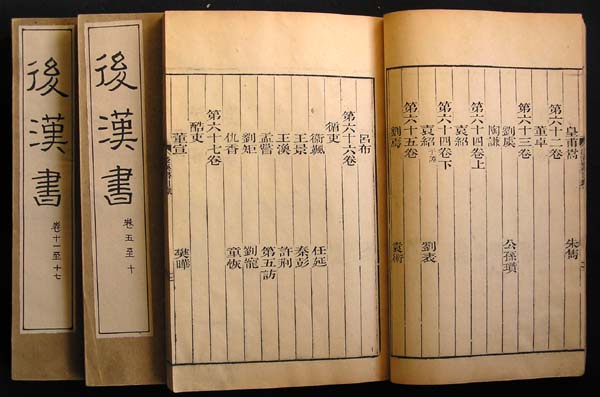 後漢書
卷十一至十七
後漢書
卷五至十
皇甫嵩 朱儁
第六十二卷
董卓
第六十三卷
劉虞 公孫瓚
陶謙
第六十四卷上
袁紹
第六十四卷下
袁紹子譚 劉表
第六十五卷
劉焉 袁術
呂布
第六十六卷
循吏
衞颯 任延
王景 秦彭
王渙 許荆
孟嘗 第五訪
劉矩 劉寵
仇香 童恢
第六十七卷
酷吏
董宣 樊曄